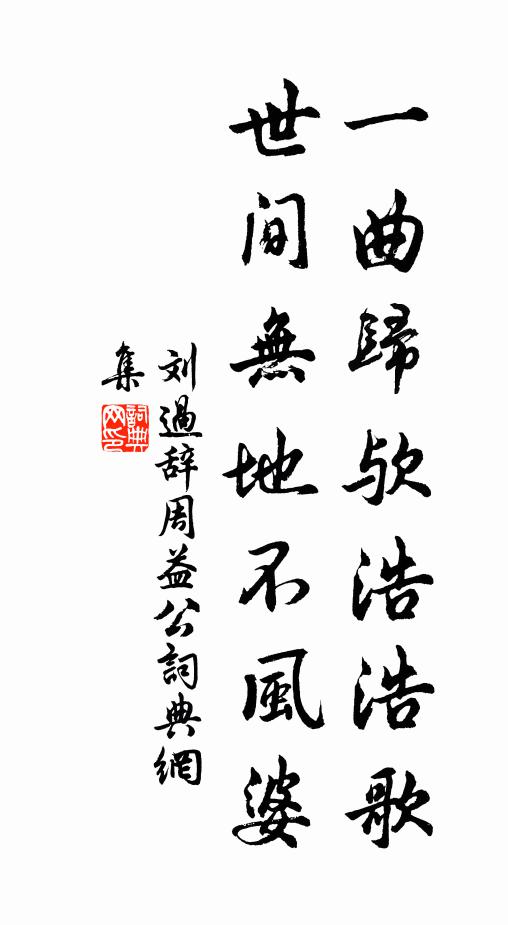 一曲歸欤浩浩歌
世间無地不風婆
刘過辞周益公詞典網
集
詞典网印